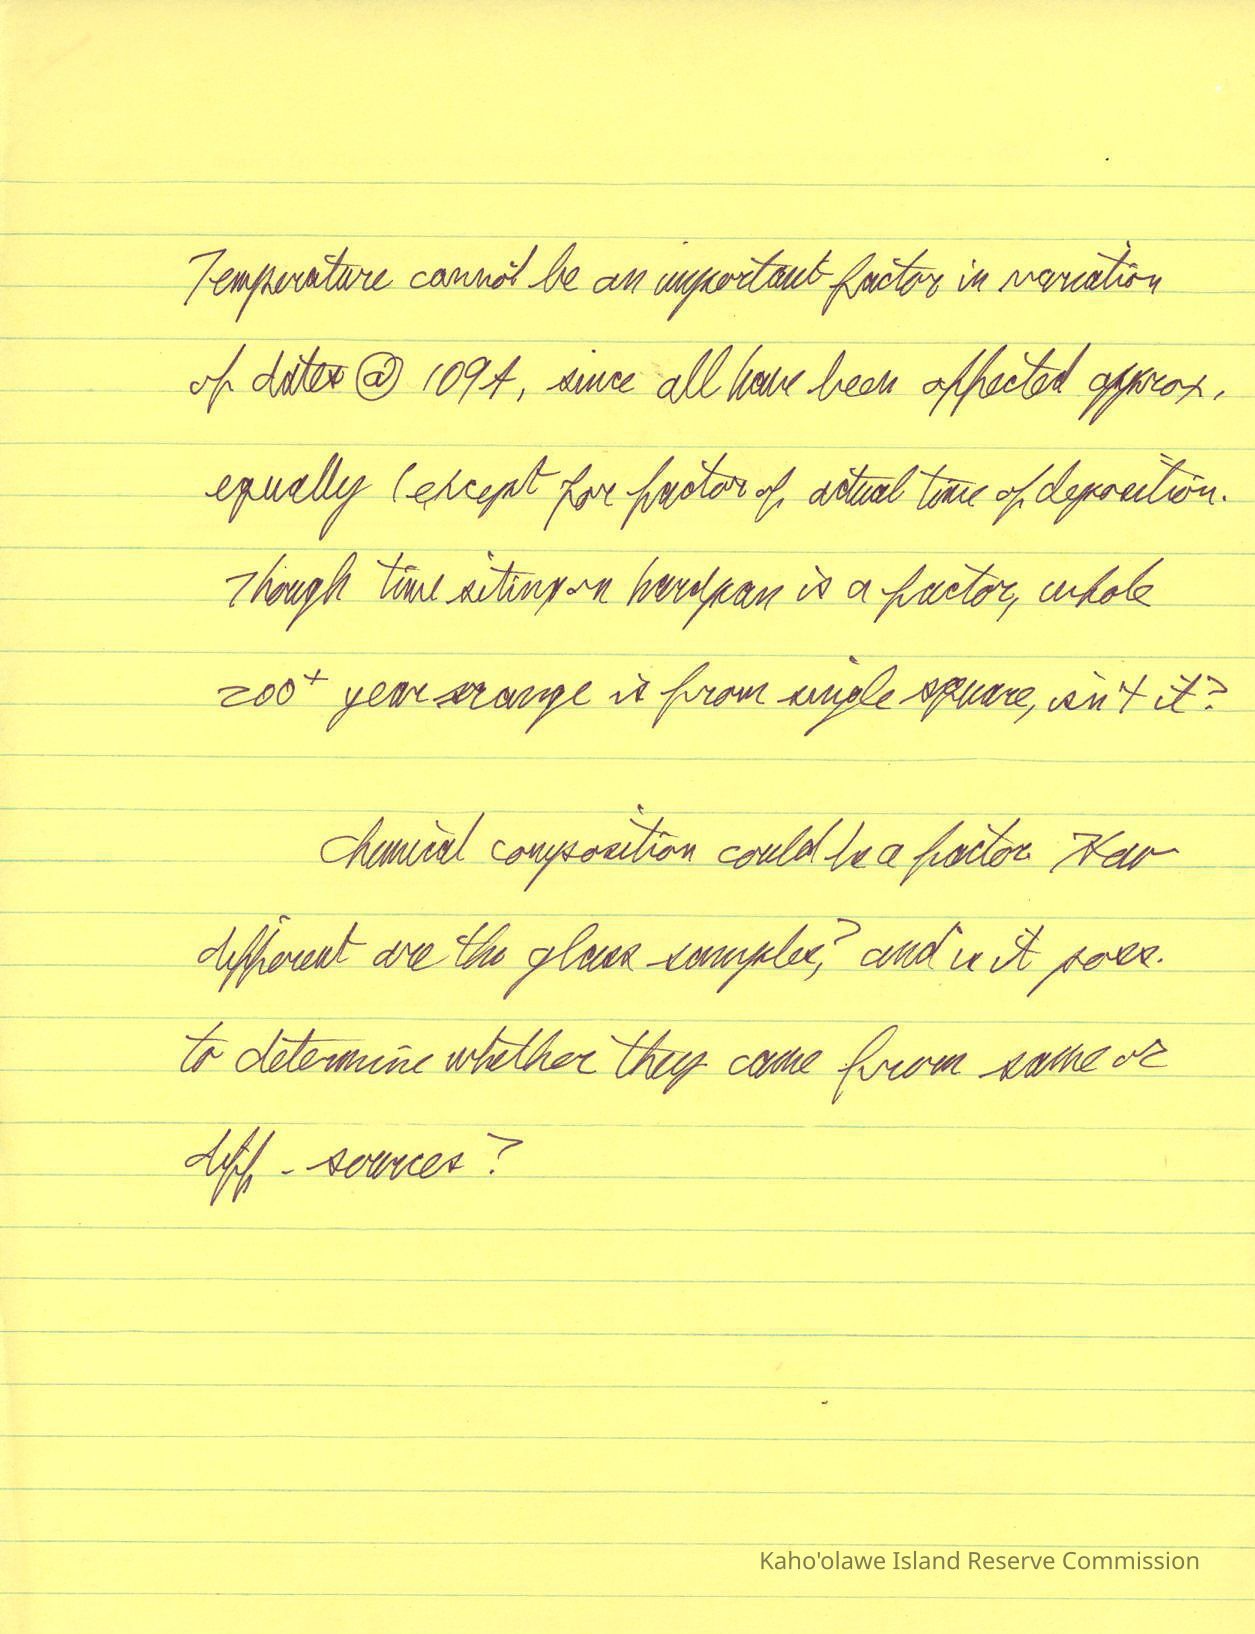 Temperature cannot be an important factor in variation
of dates @ 109A, since all have been affected approx.
equally (except for factor of actual time of deposition.
Though time siting on hardpan is a factor, whole
200+ year range is from single square, isn't it?
Chemical composition could be a factor. How
different are the glass samples? and is it poss.
to determine whether they came from same or
diff - sources?
Kaho'olawe Island Reserve Commission